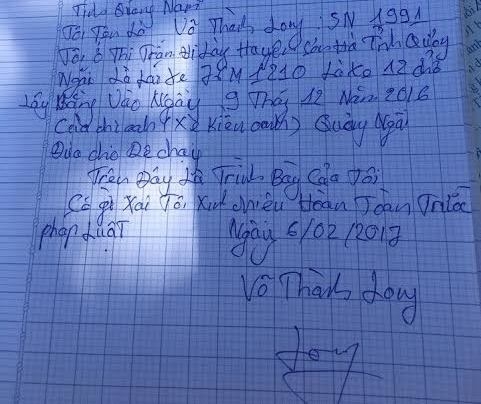 Tỉnh Quảng Nam
Tôi Tên Là Võ Thành Long SN 1991
Tôi ở Thị Trấn Di Lăng Huyện Sơn Hà Tỉnh Quảng
Ngãi Là Lái Xe 1210 12 chỗ
Lấy Bằng Vào Ngày 9 Tháng 12 Năm 2016
Của chị oanh (Xe Kiều oanh) Quảng Ngãi
Đưa cho Để chạy
Trên Đây Là Trình Bày Của Tôi
Có gì Xai Tôi Xin chiệu Hoàn Toàn Trước
pháp Luật Ngày 6/02/2017
Võ Thành Long
Long